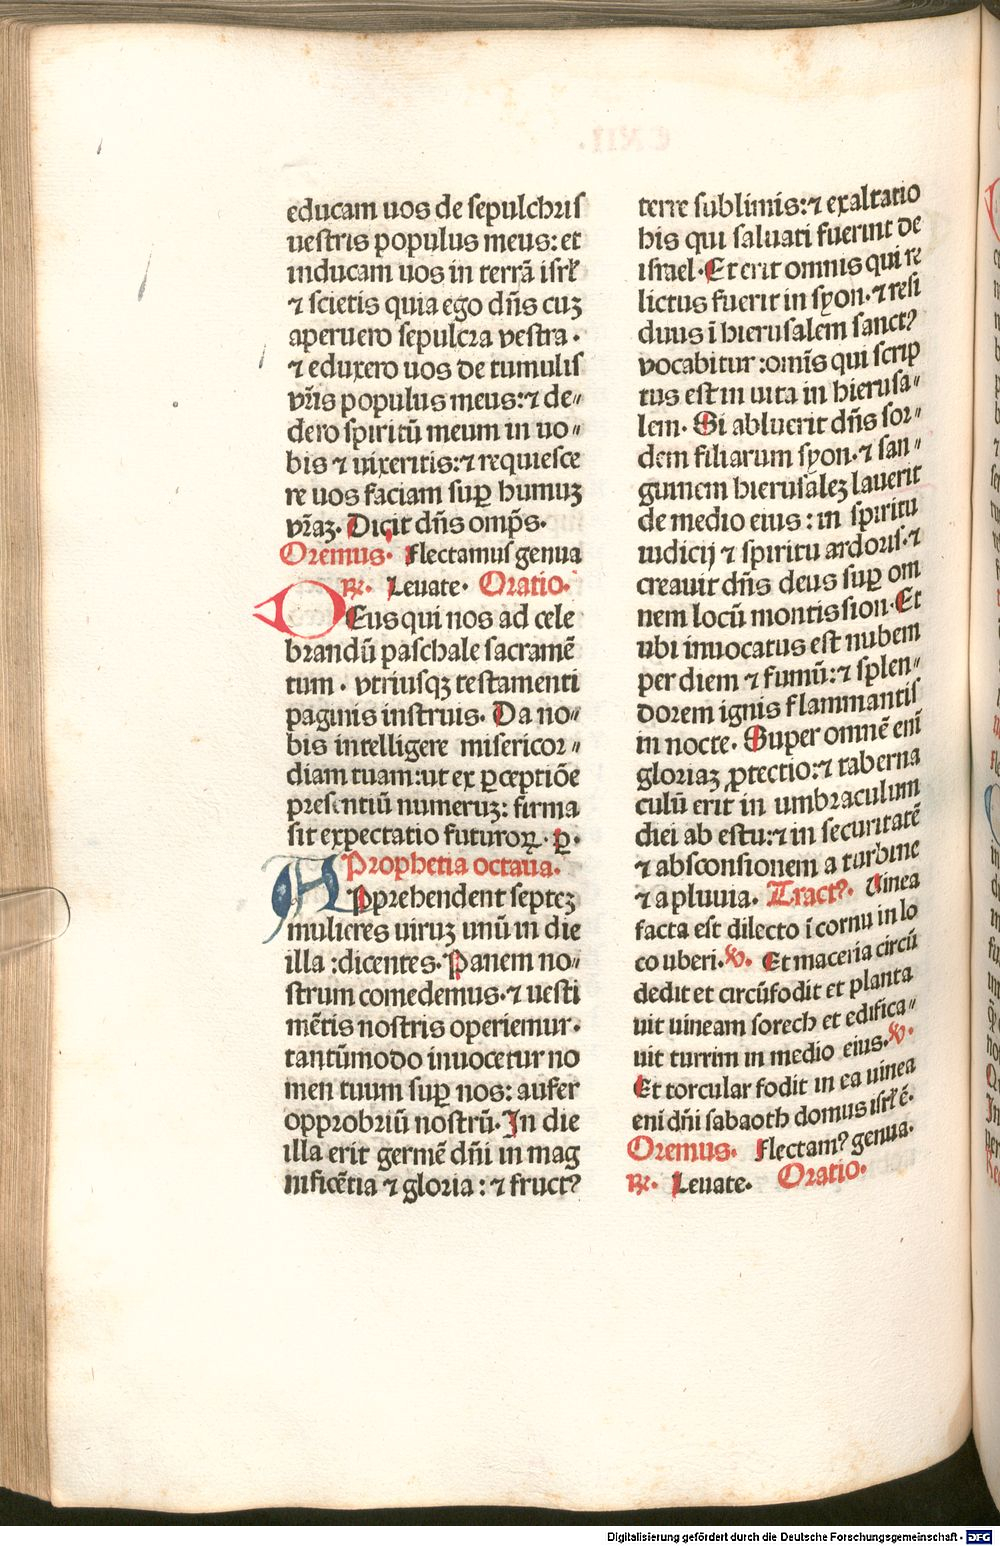 educam uos de sepulchris
uestris populus meus: et
inducam uos in terrā isrł
⁊ scietis quia ego dn̄s cuꝫ
aperuero sepulcra vestra ·
⁊ eduxero uos de tumulis
vr̄is populus meus: ⁊ de⸗
dero spiritū meum in uo⸗
bis ⁊ uixeritis: ⁊ requiesce
re uos faciam suꝑ humuꝫ
vr̄aꝫ. Dicit dn̄s omp̄s.
Oremus. Flectamus genua
℟. Leuate. Oratio.
DEus qui nos ad cele
brandū paschale sacramē
tum . vtriusqꝫ testamenti
paginis instruis. Da no⸗
bis intelligere misericor⸗
diam tuam: ut ex ꝑceptiōe
presentiū numeruꝫ: firma
sit expectatio futuroꝝ. ꝑ.
Prophetia octaua.
APprehendent septeꝫ
mulieres uiruꝫ unū in die
illa : dicentes. Panem no⸗
strum comedemus. ⁊ uesti
mētis nostris operiemur.
tantūmodo inuocetur no
men tuum suꝑ nos: aufer
opprobriū nostrū. In die
illa erit germē dn̄i in mag
nificētia ⁊ gloria : ⁊ fructꝰ
terre sublimis: ⁊ exaltatio
his qui saluati fuerint de
israel. Et erit omnis qui re
lictus fuerit in syon. ⁊ resi
duus ī hierusalem sanctꝰ
vocabitur : om̄is qui scrip
tus est in uita in hierusa⸗
lem. Si abluerit dn̄s sor⸗
dem filiarum syon. ⁊ san⸗
guinem hierusāleꝫ lauerit
de medio eius : in spiritu
iudicij ⁊ spiritu ardoris. ⁊
creauit dn̄s deus suꝑ om
nem locū montis sion. Et
ubi inuocatus est nubem
per diem ⁊ fumū: ⁊ splen⸗
dorem ignis flammantis
in nocte. Super omnē enī
gloriaꝫ ꝓtectio: ⁊ taberna
culū erit in umbraculum
diei ab estu: ⁊ in securitatē
⁊ absconsionem a turbine
⁊ a pluuia. Tractꝰ. Vinea
facta est dilecto ī cornu in lo
co uberi. ℣. Et maceria circū
dedit et circūfodit et planta
uit uineam sorech et edifica⸗
uit turrim in medio eius. ℣.
Et torcular fodit in ea uinea
enī dn̄i sabaoth domus isrł ē.
Oremus. Flectamꝰ genua.
℟. Leuate. Oratio.
Digitalisierung gefördert durch die Deutsche Forschungsgemeinschaft - DFG